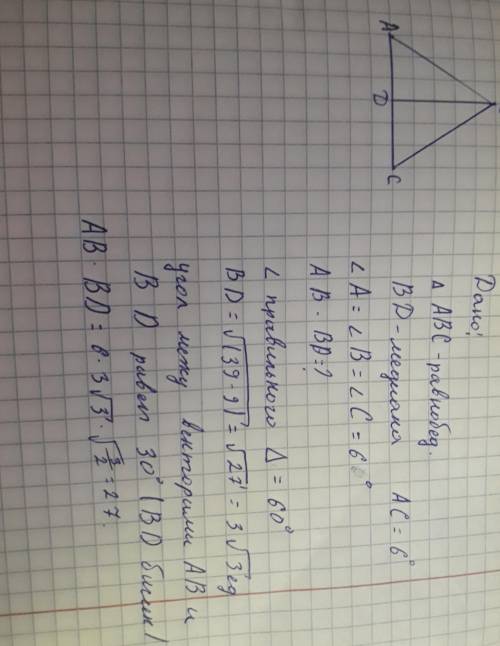 A
D
C
Дано:
Δ ABC - равнобед.
BD - медиана AC = 6°
∠A = ∠B = ∠C = 60°
AB · BD = ?
∠ правильного Δ = 60°
BD = √(39 - 9) = √27 = 3√3 ед
угол между векторами AB и
BD равен 30° (BD
AB · BD = 6 · 3√3 · √3/2 = 27.